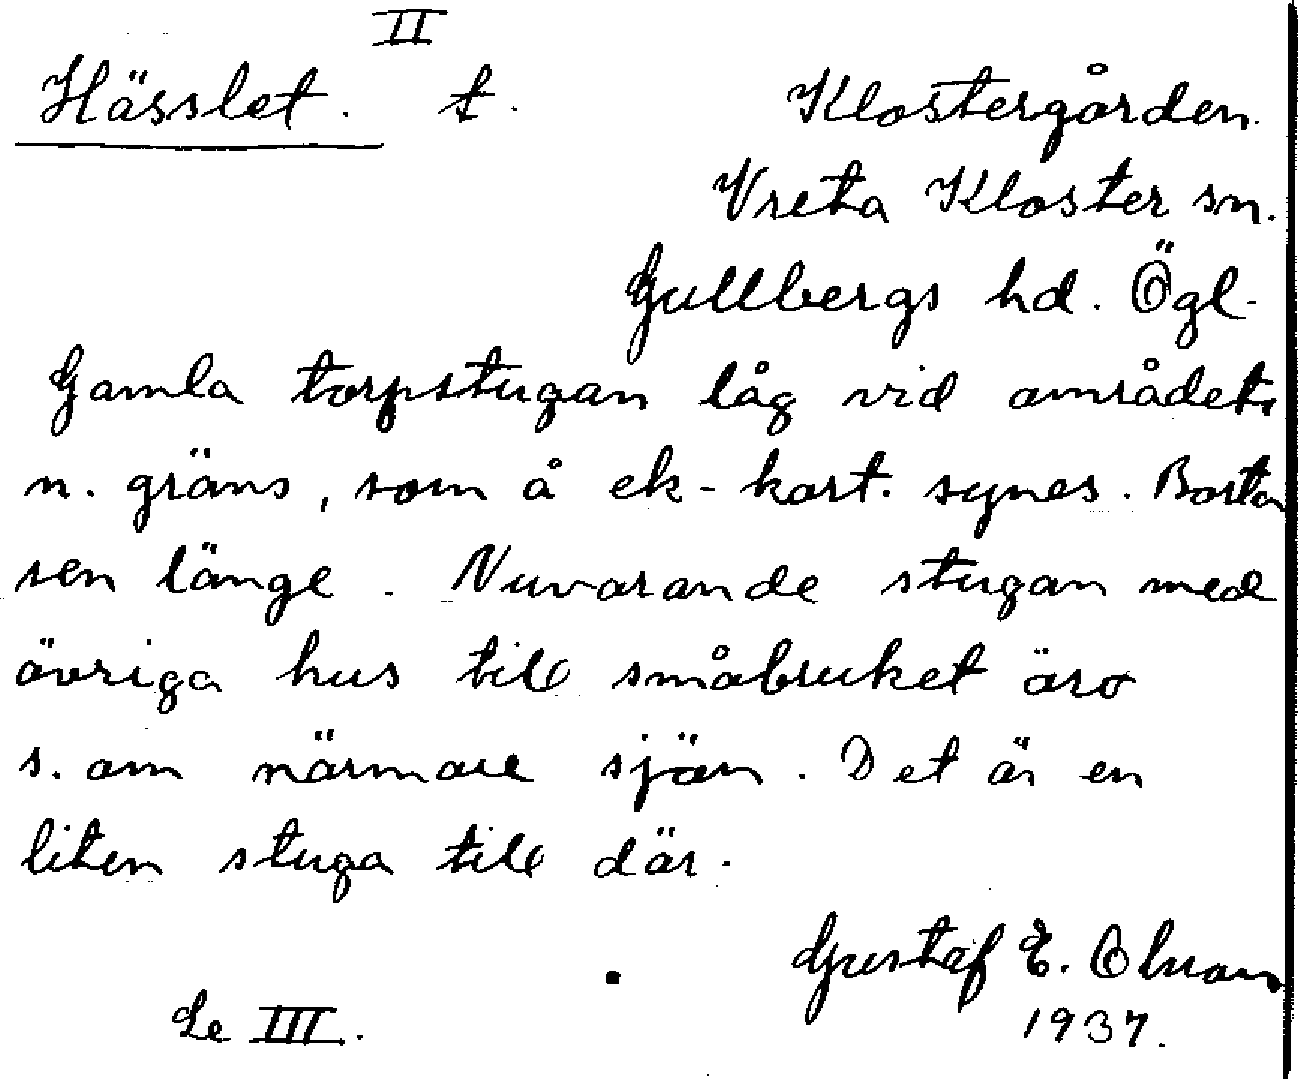 II
Hässlet. t. Klostergården.
Vreta Kloster sn.
Gullbergs hd. Ögl.
Gamla torpstugan låg vid området
n. gräns, som å ek-kart. synes. Borta
sen länge. Nuvarande stugan med
övriga hus till småbruket äro
s. om närmare sjön. Det är en
liten stuga till där.
Gustaf E. Olsson
1937.
Se III.